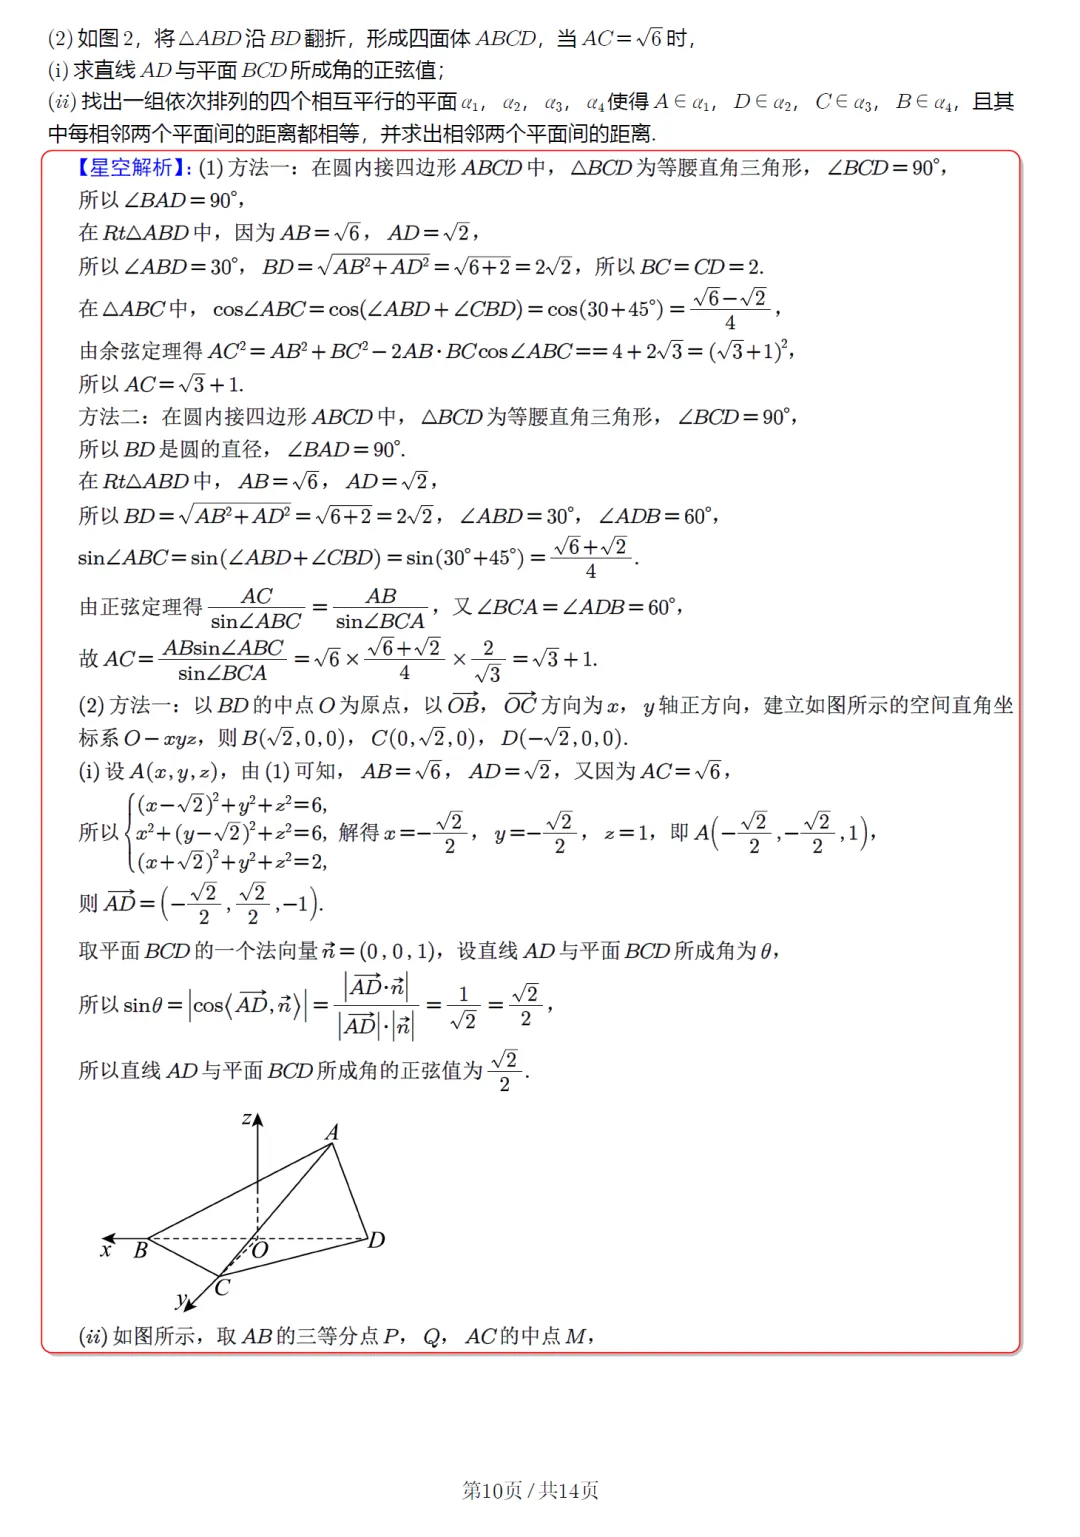 (2) 如图 2，将 △ABD 沿 BD 翻折，形成四面体 ABCD，当 AC=√6 时，
(i) 求直线 AD 与平面 BCD 所成角的正弦值；
(ii) 找出一组依次排列的四个相互平行的平面 α₁， α₂， α₃， α₄ 使得 A∈α₁， D∈α₂， C∈α₃， B∈α₄，且其
中每相邻两个平面间的距离都相等，并求出相邻两个平面间的距离.
【星空解析】: (1) 方法一：在圆内接四边形 ABCD 中，△BCD 为等腰直角三角形，∠BCD=90°，
所以 ∠BAD=90°，
在 Rt△ABD 中，因为 AB=√6， AD=√2，
所以 ∠ABD=30°， BD=√(AB²+AD²)=√(6+2)=2√2，所以 BC=CD=2.
在 △ABC 中， cos∠ABC=cos(∠ABD+∠CBD)=cos(30+45°)=(√6-√2)/4，
由余弦定理得 AC²=AB²+BC²-2AB·BCcos∠ABC==4+2√3=(√3+1)²，
所以 AC=√3+1.
方法二：在圆内接四边形 ABCD 中，△BCD 为等腰直角三角形，∠BCD=90°，
所以 BD 是圆的直径，∠BAD=90°.
在 Rt△ABD 中， AB=√6， AD=√2，
所以 BD=√(AB²+AD²)=√(6+2)=2√2，∠ABD=30°，∠ADB=60°，
sin∠ABC=sin(∠ABD+∠CBD)=sin(30°+45°)=(√6+√2)/4.
由正弦定理得 AC/sin∠ABC=AB/sin∠BCA，又 ∠BCA=∠ADB=60°，
故 AC=ABsin∠ABC/sin∠BCA=√6×(√6+√2)/4×2/√3=√3+1.
(2) 方法一：以 BD 的中点 O 为原点，以 OB→，OC→ 方向为 x，y 轴正方向，建立如图所示的空间直角坐
标系 O-xyz，则 B(√2,0,0)， C(0,√2,0)， D(-√2,0,0).
(i) 设 A(x,y,z)，由 (1) 可知， AB=√6， AD=√2，又因为 AC=√6，
所以 {(x-√2)²+y²+z²=6, x²+(y-√2)²+z²=6, (x+√2)²+y²+z²=2, 解得 x=-√2/2， y=-√2/2， z=1，即 A(-√2/2,-√2/2,1)，
则 AD→=(-√2/2,√2/2,-1).
取平面 BCD 的一个法向量 n→=(0,0,1)，设直线 AD 与平面 BCD 所成角为 θ，
所以 sinθ=|cos⟨AD→,n→⟩|=|AD→·n→|/(|AD→|·|n→|)=1/√2=√2/2，
所以直线 AD 与平面 BCD 所成角的正弦值为 √2/2.
z
A
x
B
O
D
C
y
(ii) 如图所示，取 AB 的三等分点 P， Q， AC 的中点 M，
第10页 / 共14页